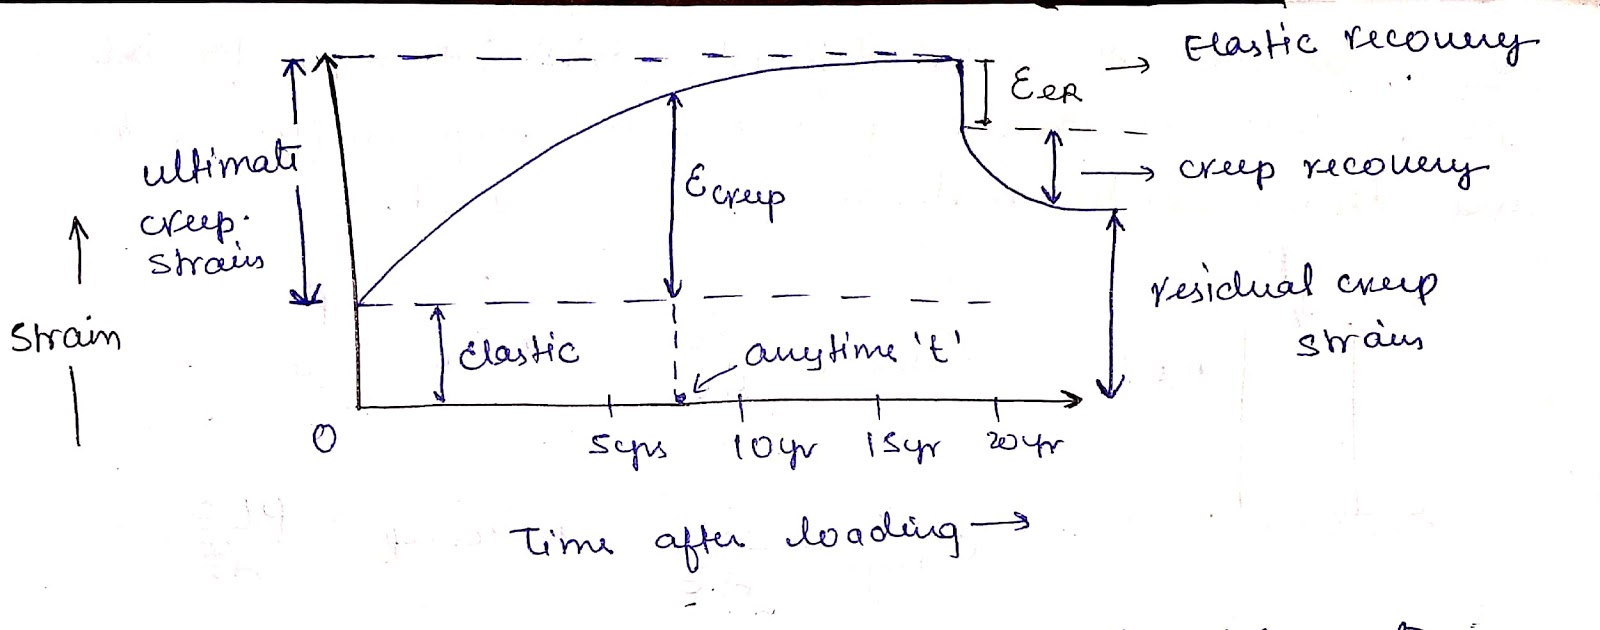 Elastic recovery
εeR
creep recovery
ultimate
creep.
strain
εcreep
residual creep
strain
Strain
Elastic
anytime 't'
0
5yrs
10yr
15yr
20yr
Time after loading